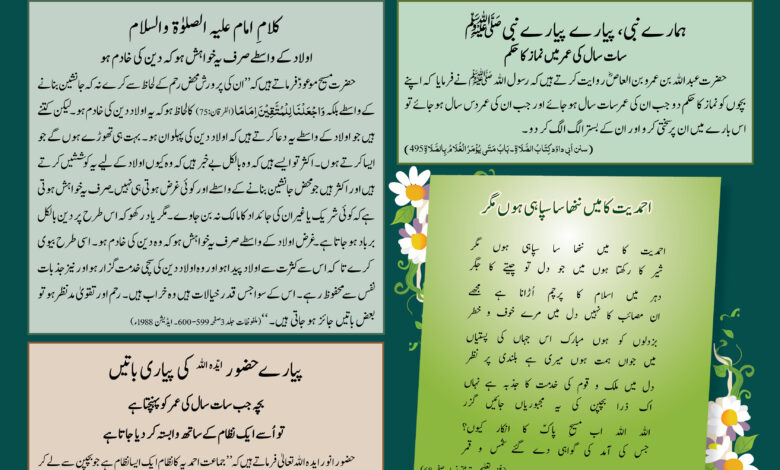 ہمارے نبی، پیارے پیارے نبی ﷺ
سات سال کی عمر میں نماز کا حکم
حضرت عبداللہ بن عمرو بن العاصؓ روایت کرتے ہیں کہ رسول اللہ ﷺ نے فرمایا کہ اپنے
بچوں کو نماز کا حکم دو جب ان کی عمر سات سال ہو جائے اور جب ان کی عمر دس سال ہو جائے تو
اس بارے میں ان پر سختی کرو اور ان کے بستر الگ الگ کر دو۔
(سنن أبي داؤد كِتَابُ الصَّلَاةِ۔ بَابُ مَتَى يُؤْمَرُ الْغُلَامُ بِالصَّلَاةِ 495)
کلامِ امام علیہ الصلوٰۃ والسلام
اولاد کے واسطے صرف یہ خواہش ہو کہ وہ دین کی خادم ہو
حضرت مسیح موعودؑ فرماتے ہیں کہ ’’ان کی پرورش محض رحم کے لحاظ سے کرے نہ کہ جانشین بنانے
کے واسطے بلکہ وَاجْعَلْنَا لِلْمُتَّقِيْنَ اِمَامًا (الفرقان:75) کا لحاظ ہو کہ یہ اولاد دین کی خادم ہو۔ لیکن کتنے
ہیں جو اولاد کے واسطے یہ دعا کرتے ہیں کہ اولاد دین کی پہلوان ہو۔ بہت ہی تھوڑے ہوں گے جو
ایسا کرتے ہوں۔ اکثر تو ایسے ہیں کہ وہ بالکل بے خبر ہیں کہ وہ کیوں اولاد کے لیے یہ کوششیں کرتے
ہیں اور اکثر ہیں جو محض جانشین بنانے کے واسطے اور کوئی غرض ہوتی ہی نہیں۔ صرف یہ خواہش ہوتی
ہے کہ کوئی شریک یا غیر ان کی جائداد کا مالک نہ بن جاوے۔ مگر یاد رکھو کہ اس طرح پر دین بالکل
برباد ہو جاتا ہے۔ غرض اولاد کے واسطے صرف یہ خواہش ہو کہ وہ دین کی خادم ہو۔ اسی طرح بیوی
کرے تا کہ اس سے کثرت سے اولاد پیدا ہو اور وہ اولاد دین کی سچی خدمت گزار ہو اور نیز جذبات
نفس سے محفوظ رہے۔ اس کے سوا جس قدر خیالات ہیں وہ خراب ہیں۔ رحم اور تقویٰ مدنظر ہو تو
بعض باتیں جائز ہو جاتی ہیں۔‘‘ (ملفوظات جلد 3 صفحہ 599-600۔ ایڈیشن 1988ء)
احمدیت کا میں ننھا سا سپاہی ہوں مگر
احمدیت کا میں ننھا سا سپاہی ہوں مگر
شیر کا رکھتا ہوں میں جو دل تو چیتے کا جگر
دہر میں اسلام کا پرچم اُڑانا ہے مجھے
ان مصائب کا نہیں دل میں مرے خوف و خطر
بزدلوں کو ہوں مبارک اس جہاں کی پستیاں
میں جواں ہمت ہوں میری ہے بلندی پر نظر
دل میں ملک و قوم کی خدمت کا جذبہ ہے نہاں
اک ذرا بچپن کی یہ مجبوریاں جائیں گزر
اللہ اللہ اب مسیحِ پاکؑ کا انکار کیوں؟
جس کی آمد کی گواہی دے گئے شمس و قمر
پیارے حضور ایدہ اللہ کی پیاری باتیں
بچہ جب سات سال کی عمر کو پہنچتا ہے
تو اُسے ایک نظام کے ساتھ وابستہ کر دیا جاتا ہے
حضور انور ایدہ اللہ تعالیٰ فرماتے ہیں کہ ’’جماعت احمدیہ کا نظام ایک ایسا نظام ہے جو بچپن سے لے کر